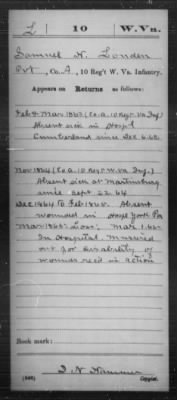 L 10 W.Va.
Samuel H. Louden
Pvt, Co. A, 10 Reg't W. Va. Infantry.
Appears on Returns as follows:
Feb & Mar 1863 (Co. A. 10 Regt. W.Va. Inf.)
Absent sick in Hospl
Cumberland since Dec 6. 62.
Nov 1864 (Co A 10 Regt W.Va. Inf.)
Absent sick at Martinsburg
since Sept. 22. 64
Dec 1864 to Feb 1865. Absent
wounded in Hospl York Pa
Mar 1865: Loss: Mar 1. 65.
In Hospital. Mustered
out for disability of
wounds recd in action
Book mark:
Copyist.